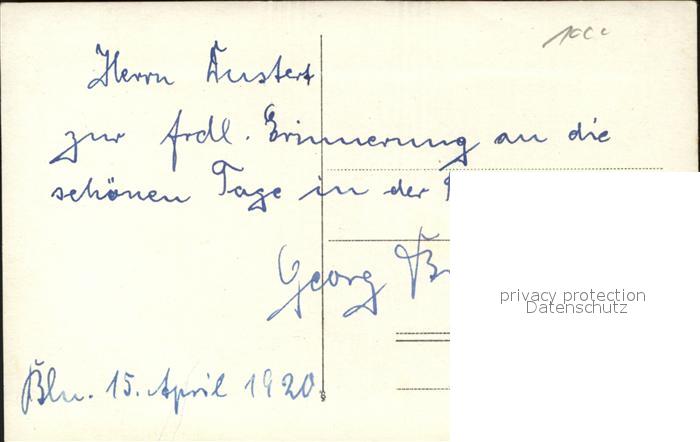 Herrn Dustert
zur frdl. Erinnerung an die
schönen Tage in der
Georg
Bln. 15. April 1920
privacy protection
Datenschutz